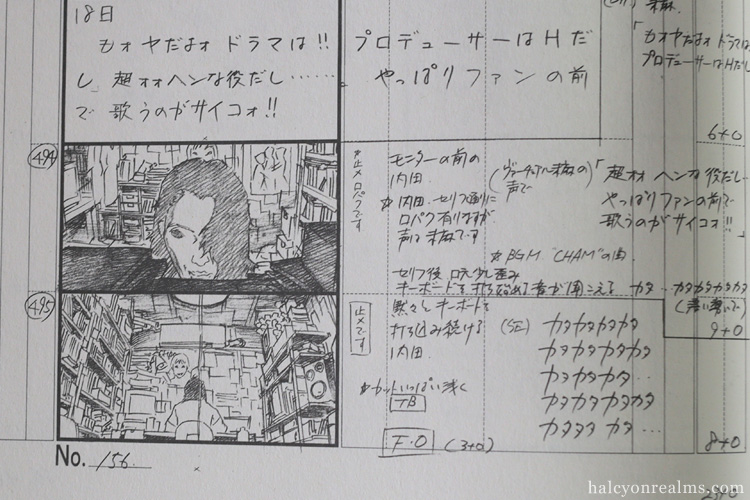 18日
もォヤだよォドラマは!! プロデューサーはHだ
し、超ォォヘンな役だし…… やっぱりファンの前
で歌うのがサイコォ!!
「もォヤだよォドラマは
プロデューサーはHだし
6+0
494
止メ口パクです
モニターの前の
内田
☆内田、セリフ通りに
口パク有りますが
声は未麻です
(ヴァーチャル未麻の
声で)
「超ォォヘンな役だし…
やっぱりファンの前で
歌うのがサイコォ!!」
☆BGM "CHAM"の曲
セリフ後、口元少し歪み
キーボードを打ち始めて音が聞こえる カタ…カタカタカタカタ
9+0
495
止メです
黙々とキーボードを
打ち込み続ける
内田
☆カットいっぱい浅く
TB
F・O (3+0)
(SE) カタカタカタカタ
カタカタカタカタカタ
カタカタカタ…
カタカタカタカタカタ
カタタタ カタ…
8+0
No. 156
halcyonrealms.com